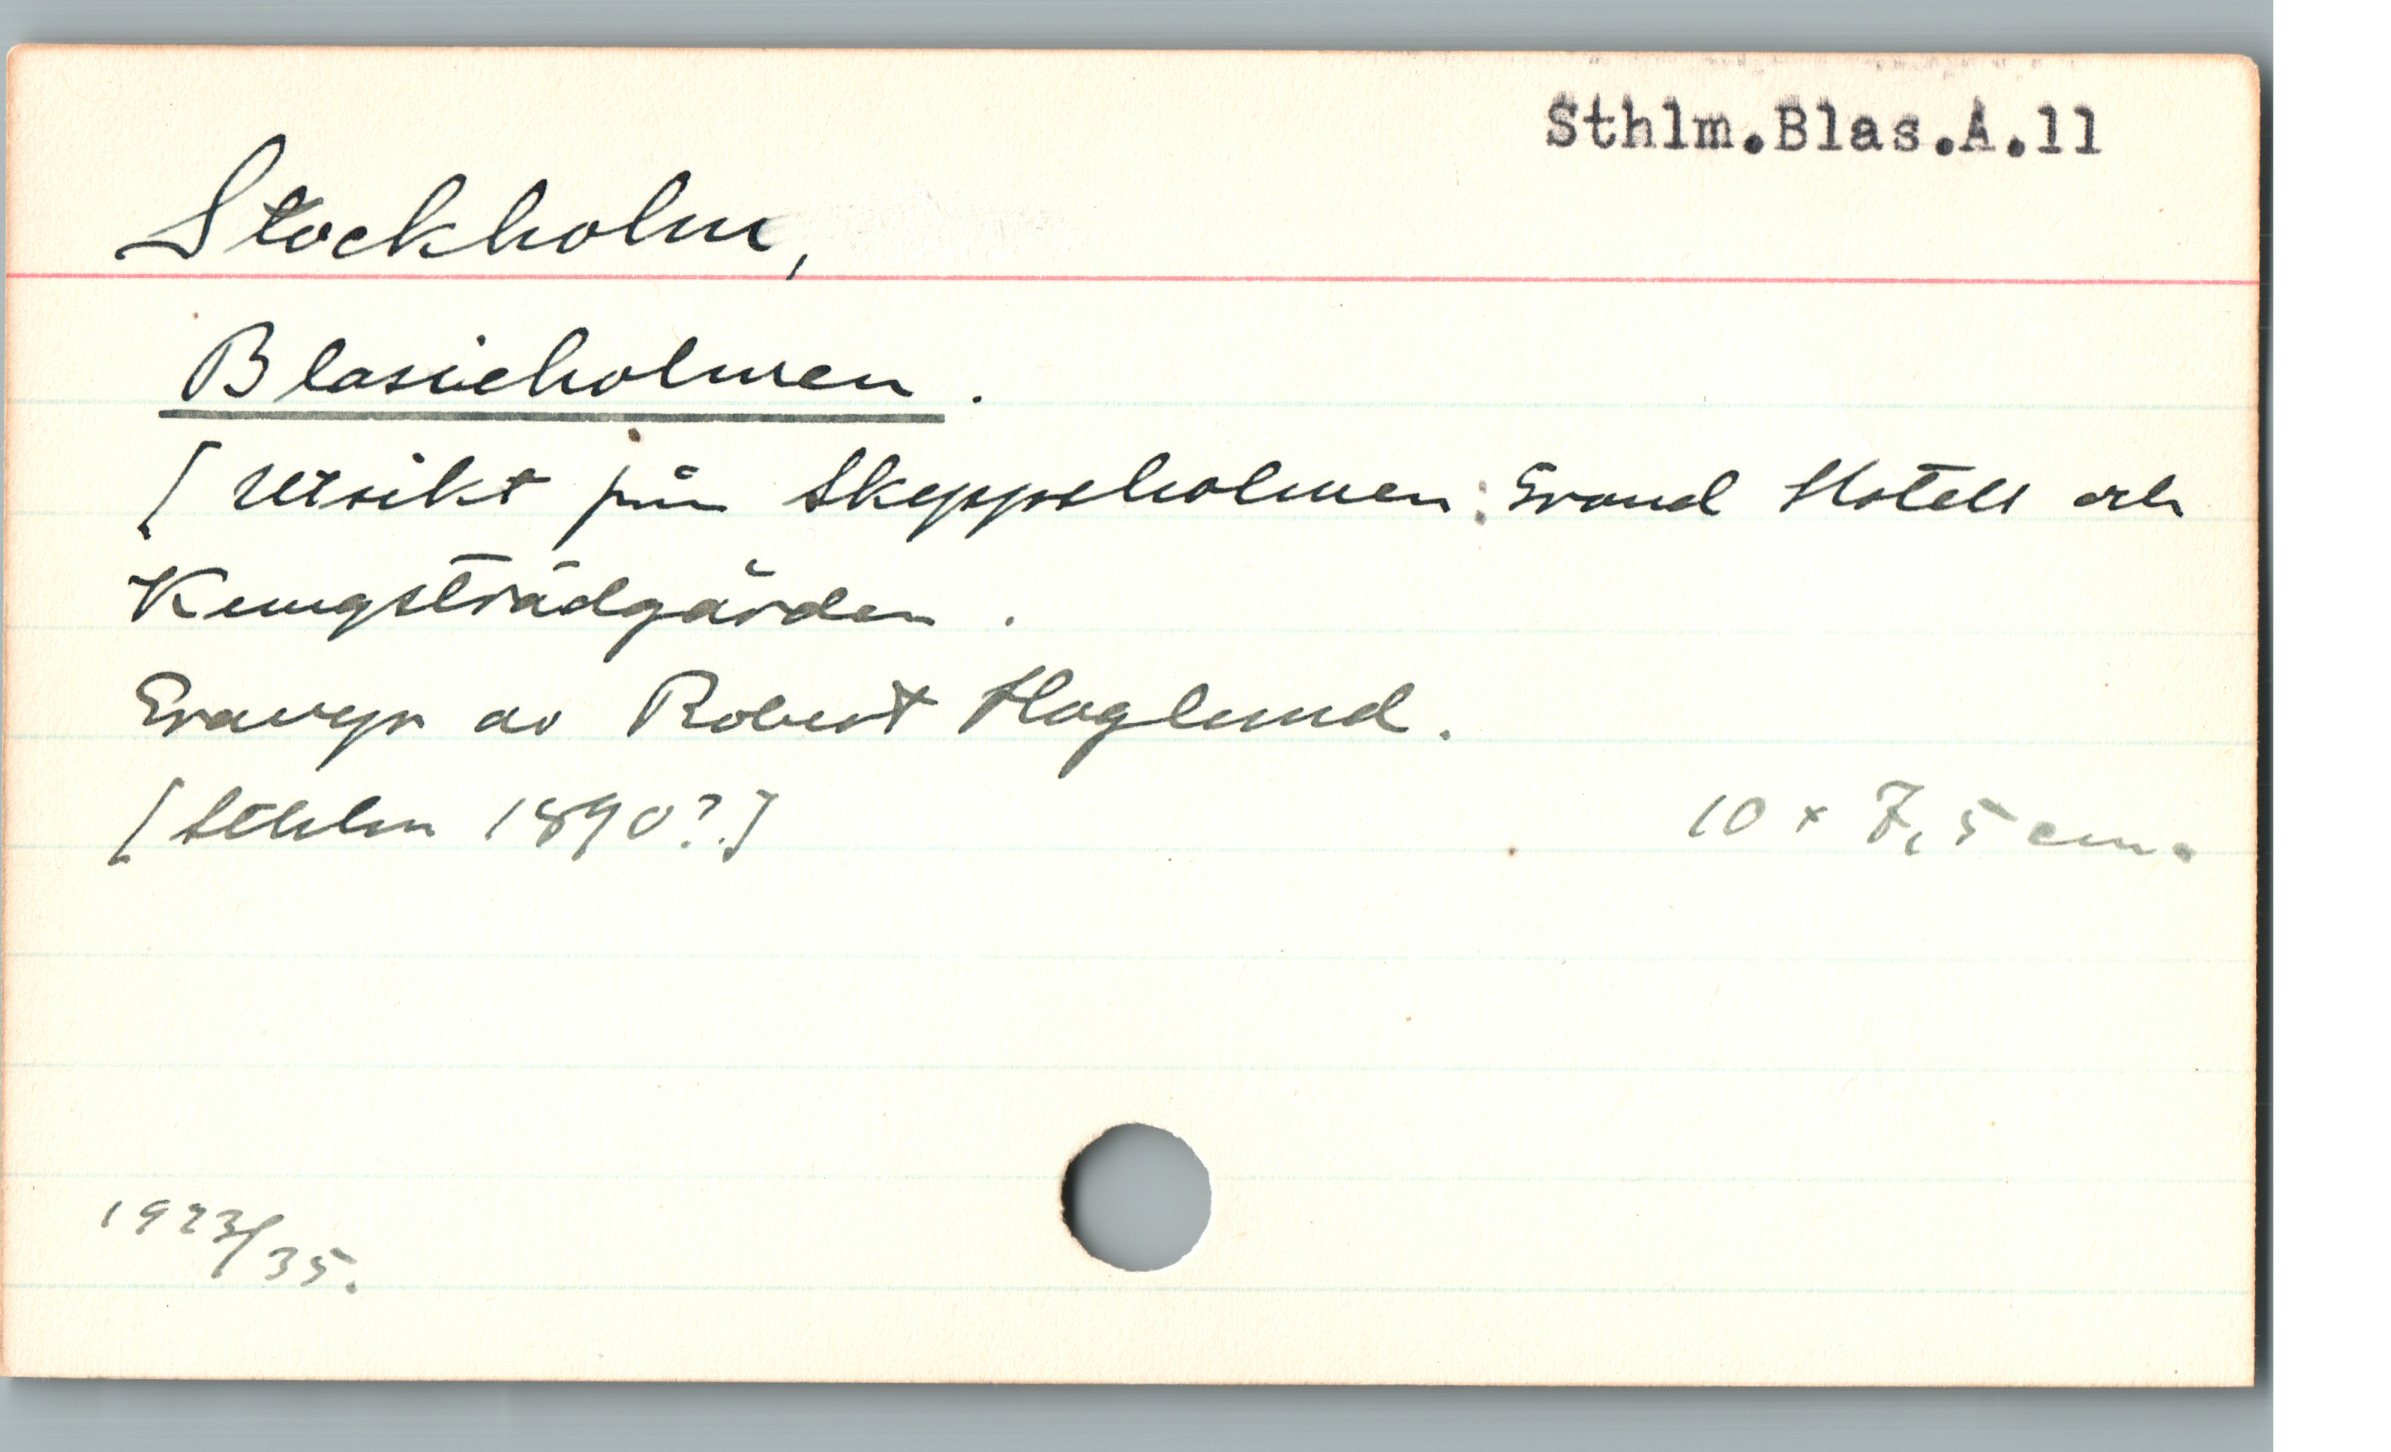 Sthlm.Blas.A.11
Stockholm,
Blasieholmen.
[Utsikt från Skeppsholmen: Grand Hotell och
Kungsträdgården.
Gravyr av Robert Haglund.
[Sthlm 1890?]
10 x 7,5 cm.
1923/35.